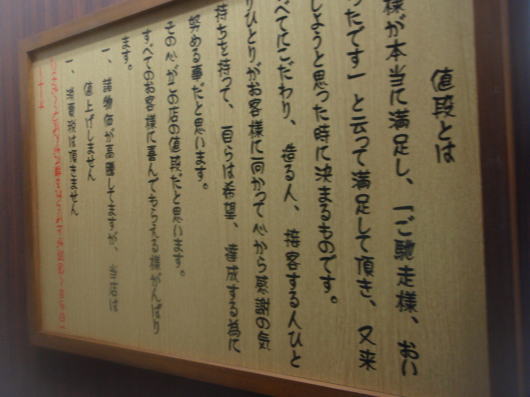 値段とは
様が本当に満足し、「ご馳走様、おい
ったです」と云って満足して頂き、又来
しようと思った時に決まるものです。
べてにこだわり、造る人、接客する人ひと
りひとりがお客様に向かって心から感謝の気
持ちを持って、自らは希望、達成する為に
努める事だと思います。
この心がこの店の値段だと思います。
すべてのお客様に喜んでもらえる様がんばり
ます。
一、諸物価が高騰してますが、当店は
値上げしません
一、消費税は頂きません